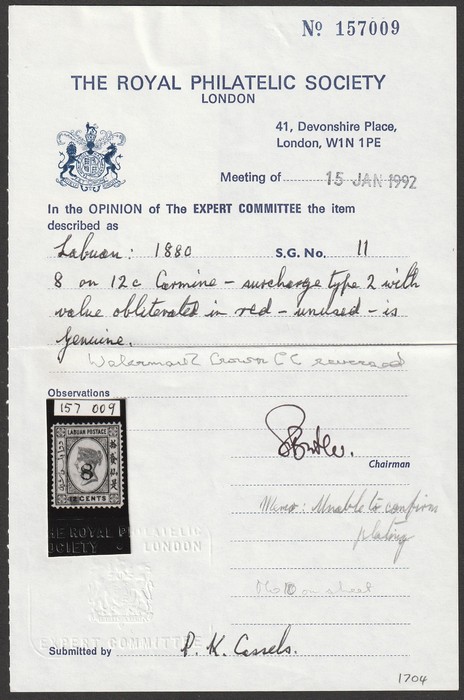 No 157009
THE ROYAL PHILATELIC SOCIETY
LONDON
41, Devonshire Place,
London, W1N 1PE
Meeting of 15 JAN 1992
In the OPINION of The EXPERT COMMITTEE the item
described as
Labuan: 1880 S.G. No. 11
8 on 12c Carmine - surcharge type 2 with
value obliterated in red - unused - is
genuine.
Watermark Crown CC reversed
Observations
157 009
LABUAN POSTAGE
8
12 CENTS
THE ROYAL PHILATELIC
SOCIETY LONDON
Chairman
Memo: Unable to confirm
plating
No 10 on sheet
EXPERT COMMITTEE
Submitted by P. K. Cassels.
1704